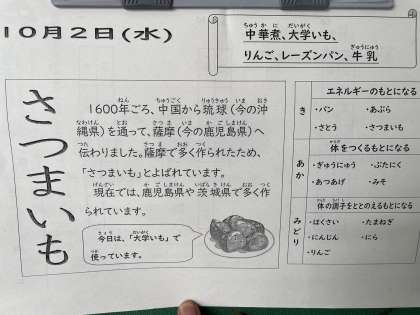 10月2日(水)
中華煮、大学いも、
りんご、レーズンパン、牛乳
さつまいも
1600年ごろ、中国から琉球(今の沖
縄県)を通って、薩摩(今の鹿児島県)へ
伝わりました。薩摩で多く作られたため、
「さつまいも」とよばれています。
現在では、鹿児島県や茨城県で多く作
られています。
今日は、「大学いも」で
使っています。
き
エネルギーのもとになる
・パン ・あぶら
・さとう ・さつまいも
あか
体をつくるもとになる
・ぎゅうにゅう ・ぶたにく
・あつあげ ・みそ
みどり
体の調子をととのえるもとになる
・はくさい ・たまねぎ
・にんじん ・にら
・りんご